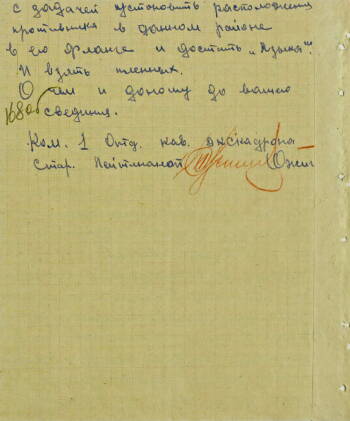 с задачей установить расположения
противника в данном районе
в его фланге и достать „Языка".
И взять пленных.
О чем и доношу до вашего
сведения.
Ком. 1 Отд. кав. эскадрона
Стар. Лейтенант